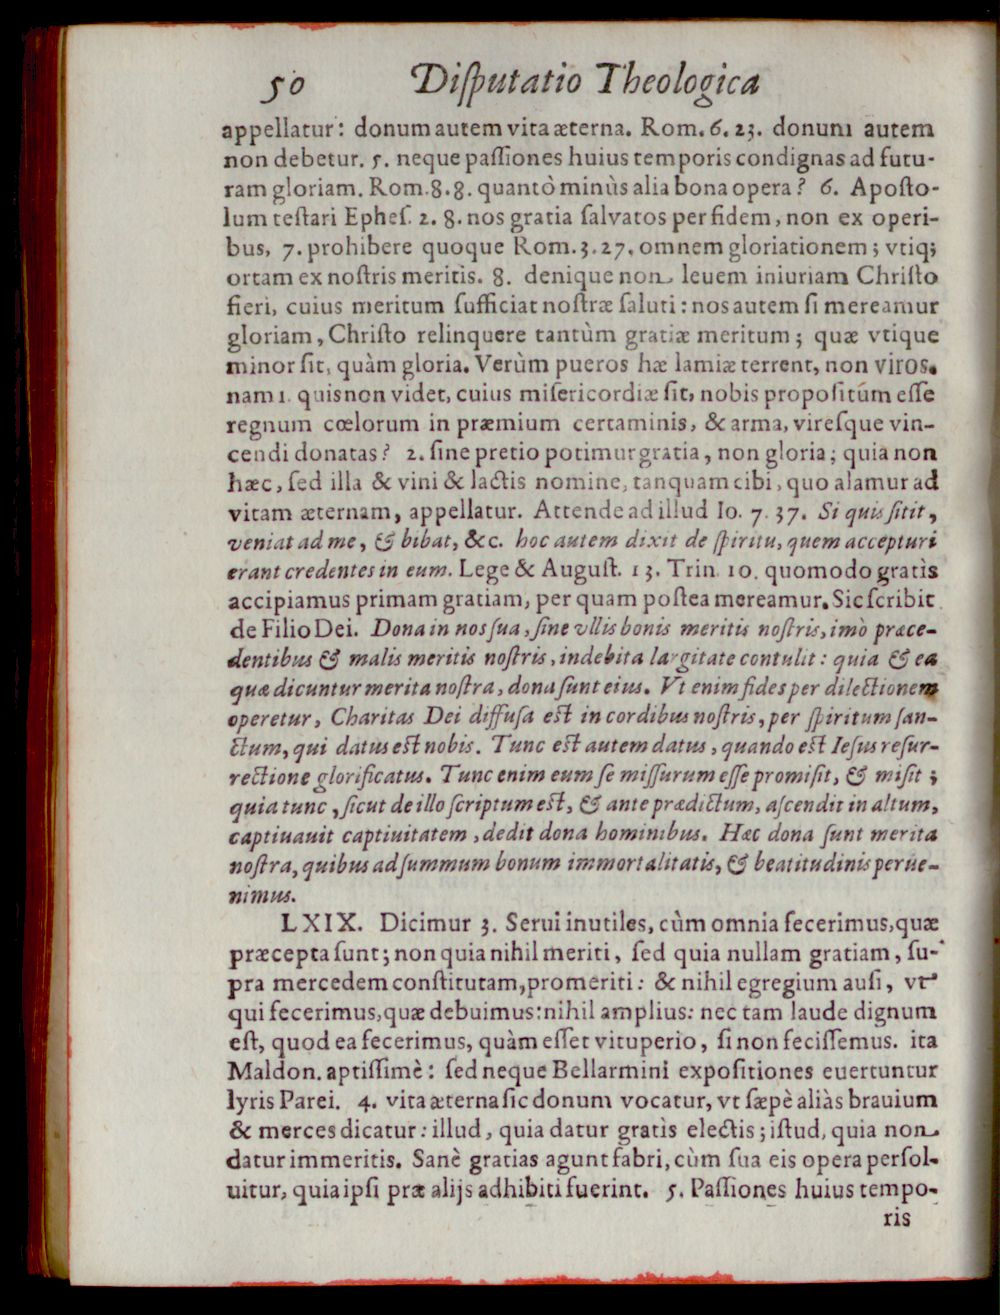 50 Diſputatio Theologica
appellatur: donum autem vita æterna. Rom. 6. 23. donum autem
non debetur. 5. neque paſſiones huius temporis condignas ad futu-
ram gloriam. Rom. 8. 8. quantò minùs alia bona opera? 6. Apoſto-
lum teſtari Epheſ. 2. 8. nos gratia ſalvatos per fidem, non ex operi-
bus, 7. prohibere quoque Rom. 3. 27. omnem gloriationem; vtiq;
ortam ex noſtris meritis. 8. denique non leuem iniuriam Chriſto
fieri, cuius meritum ſufficiat noſtræ ſaluti: nos autem ſi mereamur
gloriam, Chriſto relinquere tantùm gratiæ meritum; quæ vtique
minor ſit, quàm gloria. Verùm pueros hæ lamiæ terrent, non viros.
nam 1. quis non videt, cuius miſericordiæ ſit, nobis propoſitúm eſſe
regnum cœlorum in præmium certaminis, & arma, vireſque vin-
cendi donatas? 2. ſine pretio potimur gratia, non gloria; quia non
hæc, ſed illa & vini & lactis nomine, tanquam cibi, quo alamur ad
vitam æternam, appellatur. Attende ad illud Io. 7. 37. Si quis ſitit,
veniat ad me, & bibat, &c. hoc autem dixit de ſpiritu, quem accepturi
erant credentes in eum. Lege & Auguſt. 13. Trin. 10. quomodo gratis
accipiamus primam gratiam, per quam poſtea mereamur. Sic ſcribit
de Filio Dei. Dona in nos ſua, ſine vllis bonis meritis noſtris, imò præce-
dentibus & malis meritis noſtris, indebita largitate contulit: quia & ea
quæ dicuntur merita noſtra, dona ſunt eius. Vt enim fides per dilectionem
operetur, Charitas Dei diffuſa eſt in cordibus noſtris, per ſpiritum ſan-
ctum, qui datus eſt nobis. Tunc eſt autem datus, quando eſt Ieſus reſur-
rectione glorificatus. Tunc enim eum ſe miſſurum eſſe promiſit, & miſit;
quia tunc, ſicut de illo ſcriptum eſt, & ante prædictum, aſcendit in altum,
captiuauit captiuitatem, dedit dona hominibus. Hæc dona ſunt merita
noſtra, quibus ad ſummum bonum immortalitatis, & beatitudinis perue-
nimus.
LXIX. Dicimur 3. Serui inutiles, cùm omnia fecerimus, quæ
præcepta ſunt; non quia nihil meriti, ſed quia nullam gratiam, ſu-
pra mercedem conſtitutam, promeriti: & nihil egregium auſi, vt
qui fecerimus, quæ debuimus: nihil amplius: nec tam laude dignum
eſt, quod ea fecerimus, quàm eſſet vituperio, ſi non feciſſemus. ita
Maldon. aptiſſimè: ſed neque Bellarmini expoſitiones euertuntur
lyris Parei. 4. vita æterna ſic donum vocatur, vt ſæpè aliàs brauium
& merces dicatur: illud, quia datur gratis electis; iſtud, quia non
datur immeritis. Sanè gratias agunt fabri, cùm ſua eis opera perſol-
uitur, quia ipſi præ alijs adhibiti fuerint. 5. Paſſiones huius tempo-
ris